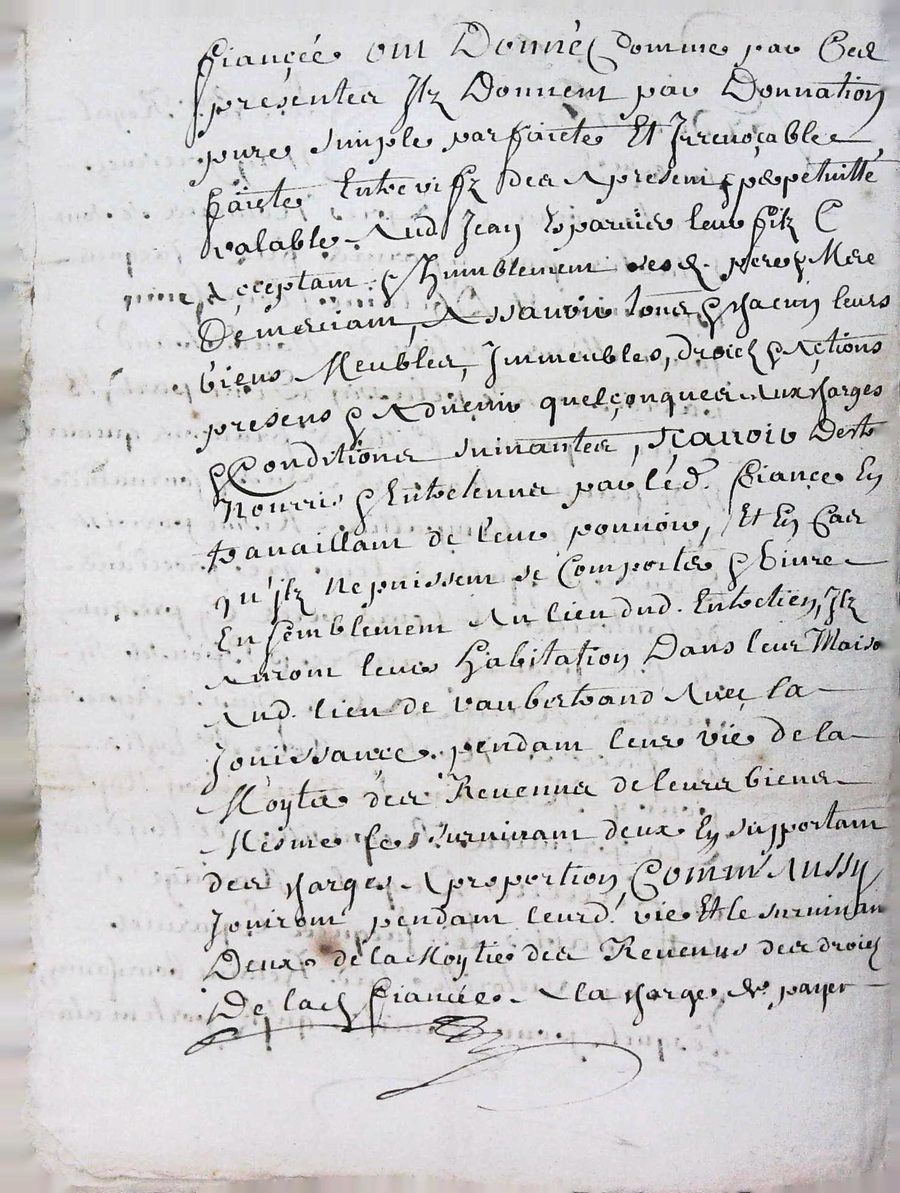 fiancée ont Donné & domme par Ces
presentes Ilz Donnent par Donnation
pure simple parfaicte Et Irrevoçable
faicte Entre vifz des a present & perpetuitté
valable Aud Jean leur filz
Acçeptant & humblement sesd. pere & Mere
Remerciant, Assavoir tous & chacun leurs
biens Meubles, Immeubles, droictz & Actions
presens & Advenir quelçonques Aux charges
& Conditions suivantes, sçavoir Destre
Nourris & Entretenus par léd. fiance En
travaillant de leur pouvoir, Et En Cas
qu'Ilz Ne puissent se Comporter & vivre
Ensemblement Au lieu dud. Entretien, Ilz
Auront leurs habitation Dans leur Maiso
Aud. lieu de vaubertrand Avec la
Jouissance pendant leurs vie de la
Moytie des Revenus de leurs biens
Mesme le survivant deux En supportant
des charges A proportion, Comm'Aussy
Jouiront pendant leurd. vie Et le survivan
Deux de la Moytie des Revenus des droictz
De lad fiancée A la charge de payer